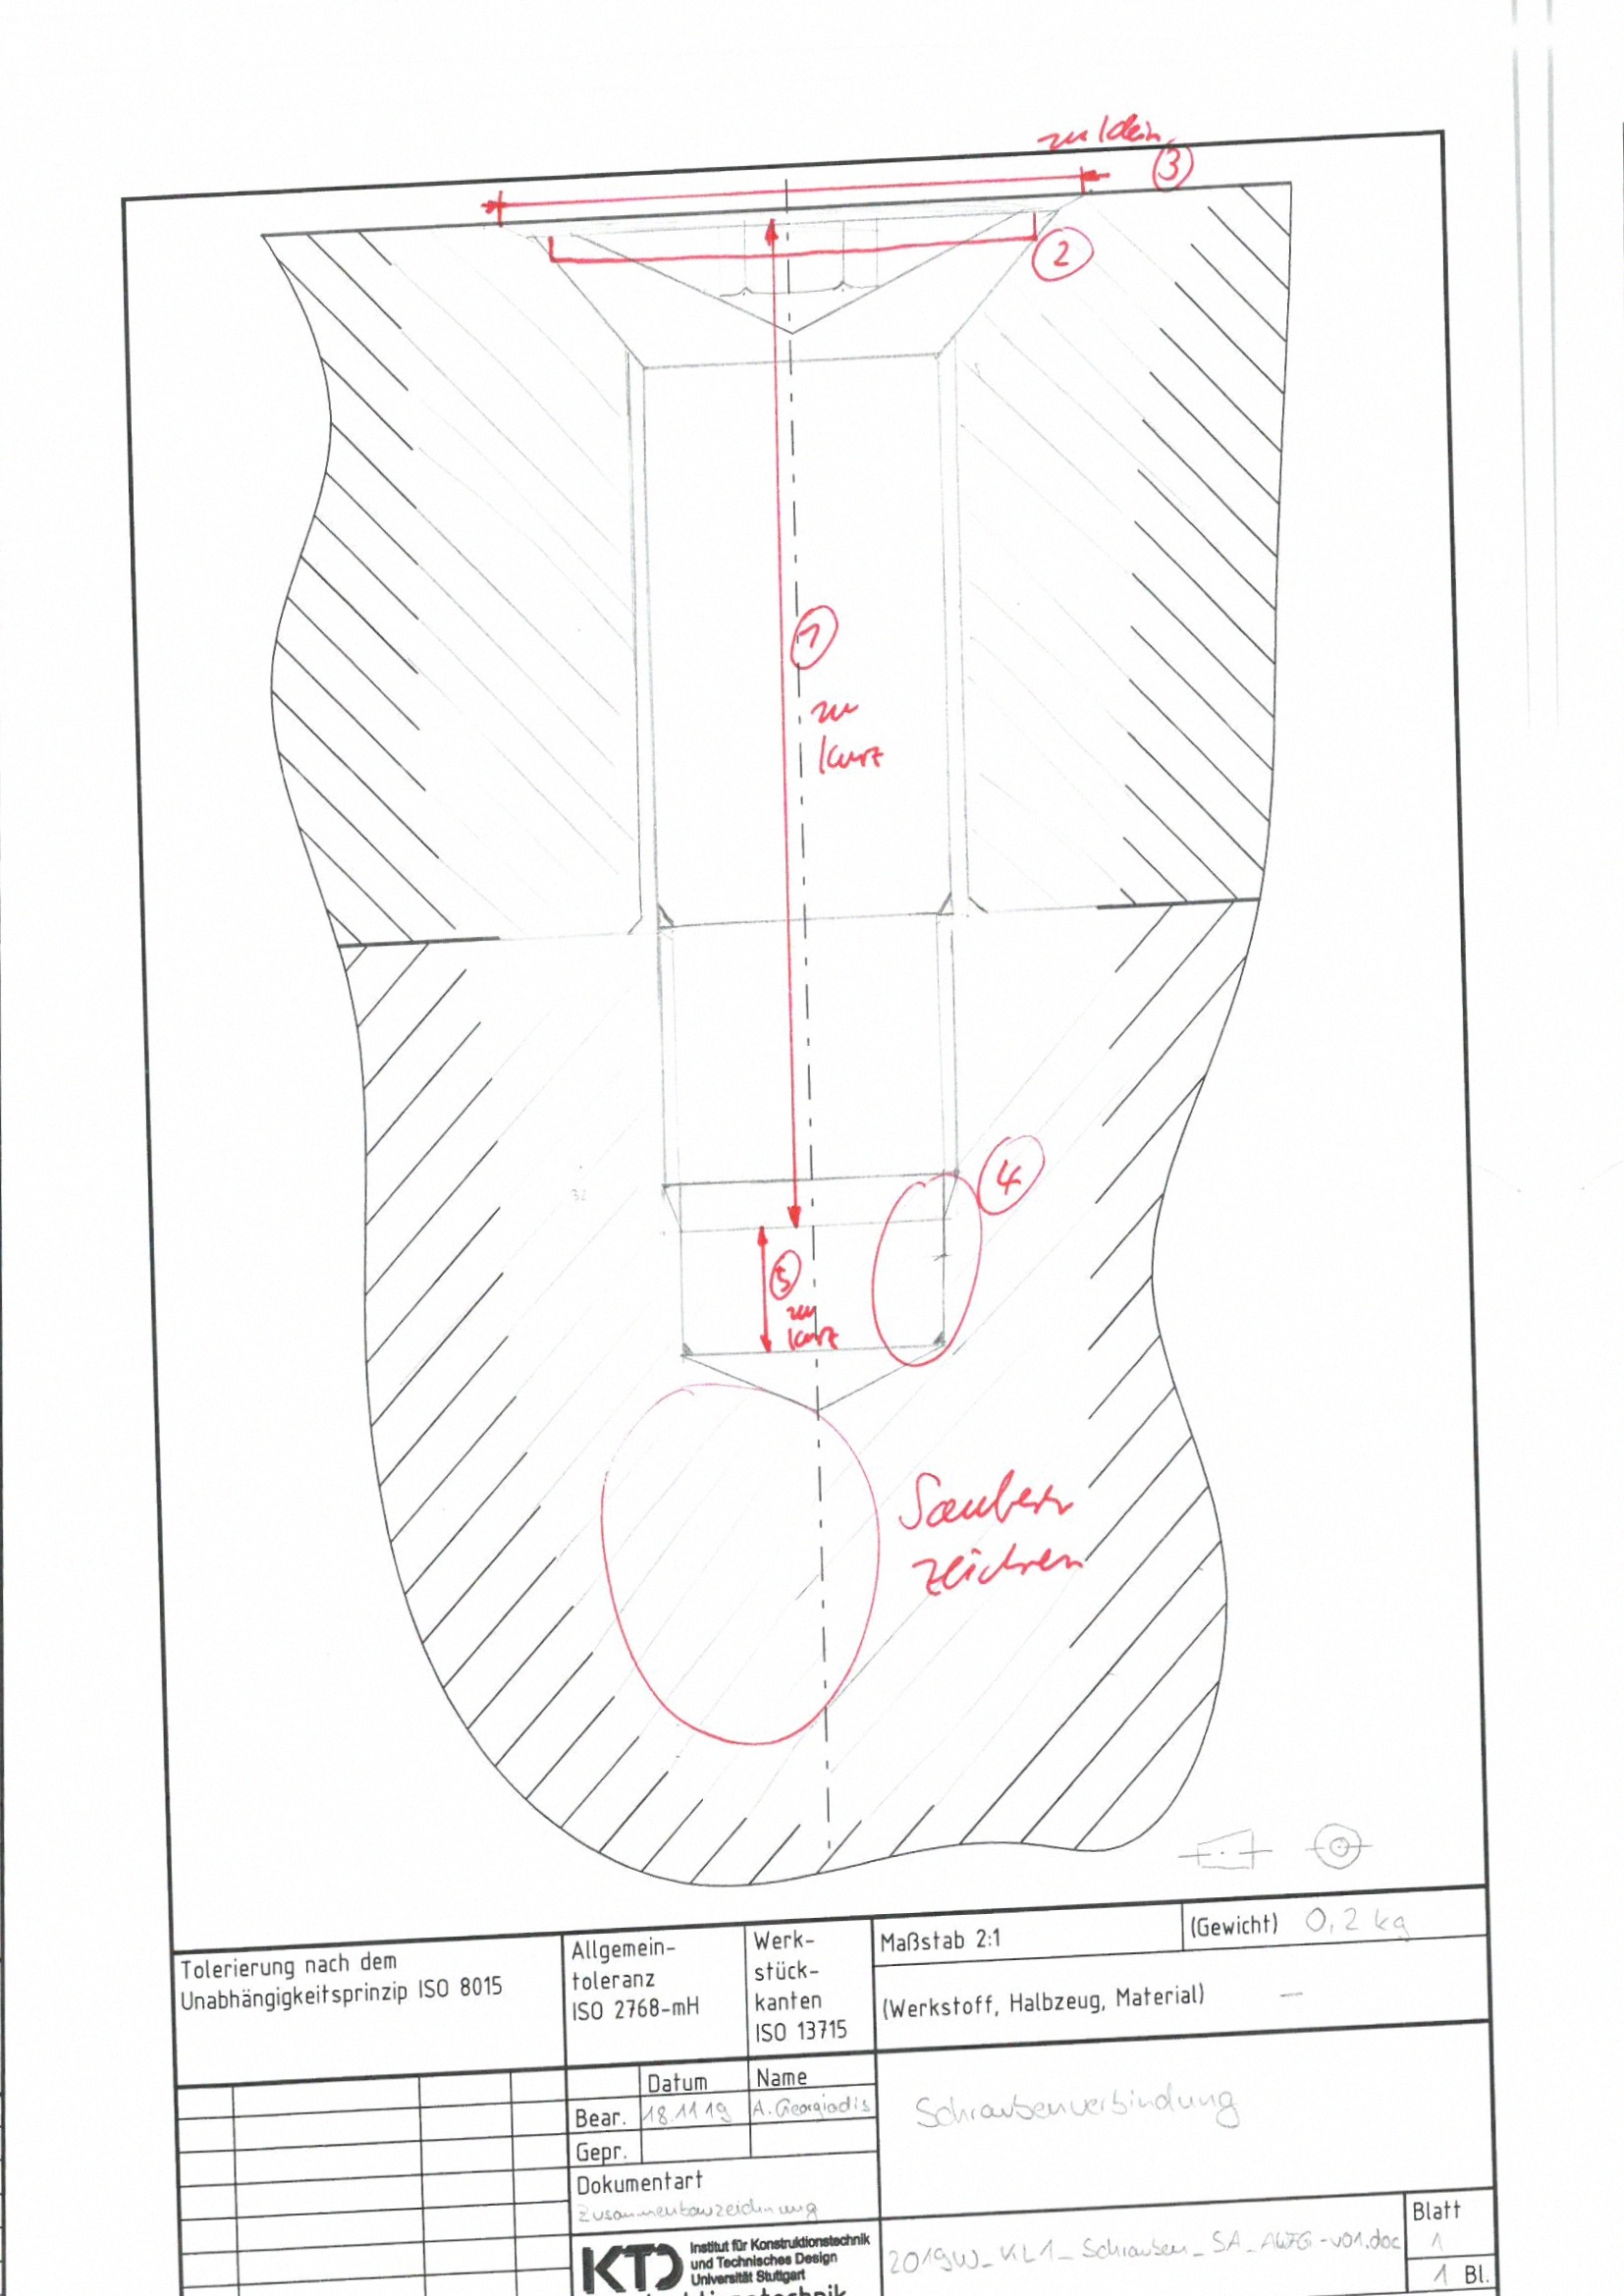 zu klein
3
2
1
zu
kurz
4
5
zu
kurz
32
Sauber
zeichnen
Tolerierung nach dem
Unabhängigkeitsprinzip ISO 8015
Allgemein-
toleranz
ISO 2768-mH
Werk-
stück-
kanten
ISO 13715
Maßstab 2:1
(Gewicht) 0,2 kg
(Werkstoff, Halbzeug, Material) —
Datum Name
Bear. 18.11.19 A. Georgiadis
Gepr.
Dokumentart
Zusammenbauzeichnung
Schraubenverbindung
KTD Institut für Konstruktionstechnik
und Technisches Design
Universität Stuttgart
2019W_KL1_Schrauben_SA_A_-v01.doc
Blatt
1
1 Bl.